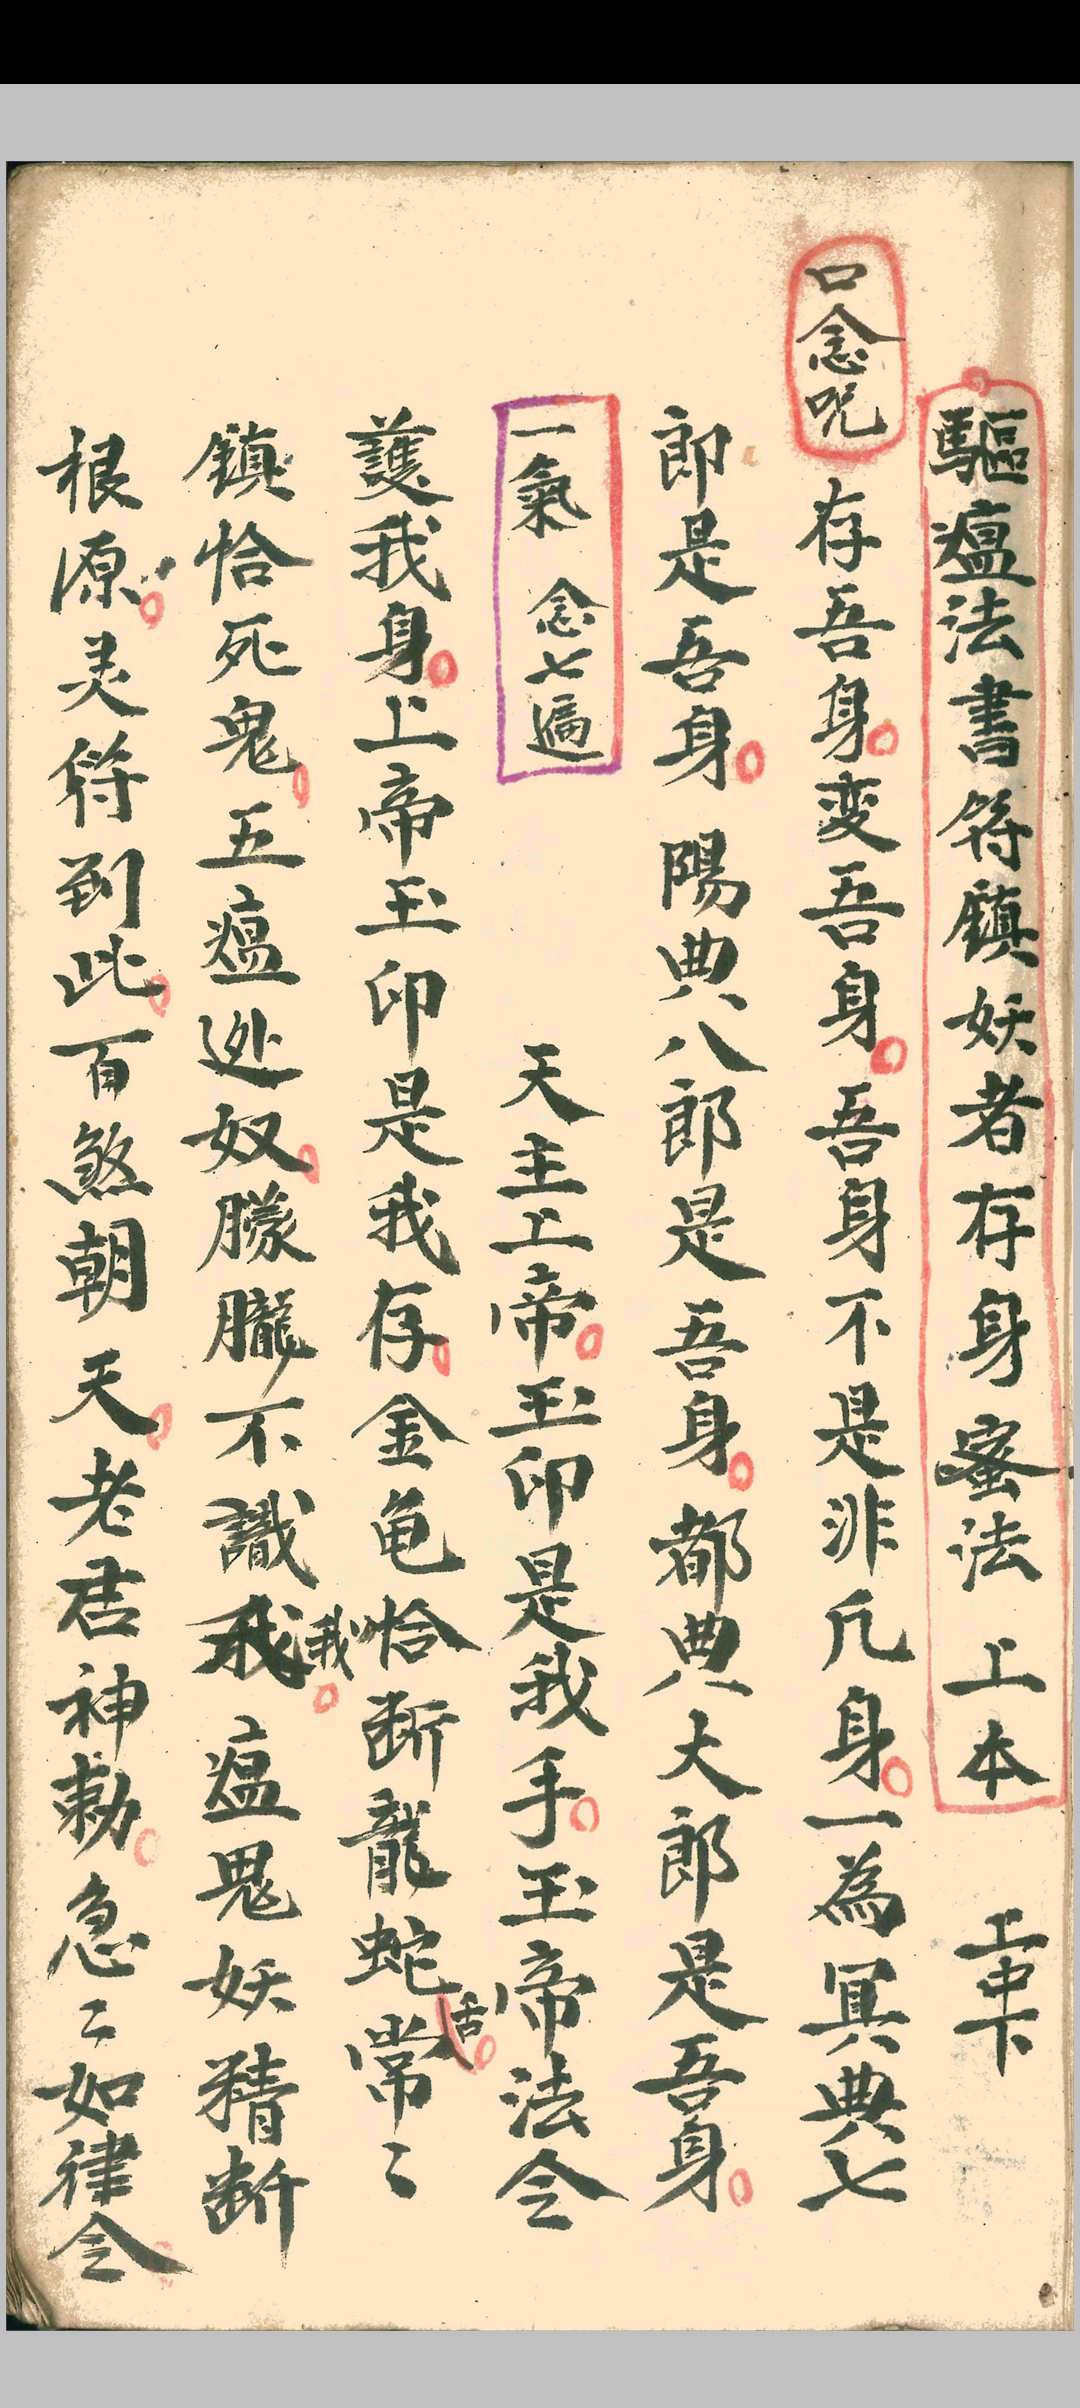 驅瘟法書符鎮妖者存身蜜法上本 上中下
口念呪 存吾身変吾身吾身不是非凡身一為冥典七
郎是吾身陽典八郎是吾身都典大郎是吾身
一氣 念七遍 天主上帝玉印是我手玉帝法令
護我身上帝玉印是我存金龟恰断龍蛇舌常〻
鎮恰死鬼五瘟迯奴朦朧不識我我瘟鬼妖精断
根源灵符到此百煞朝天老君神勅急〻如律令